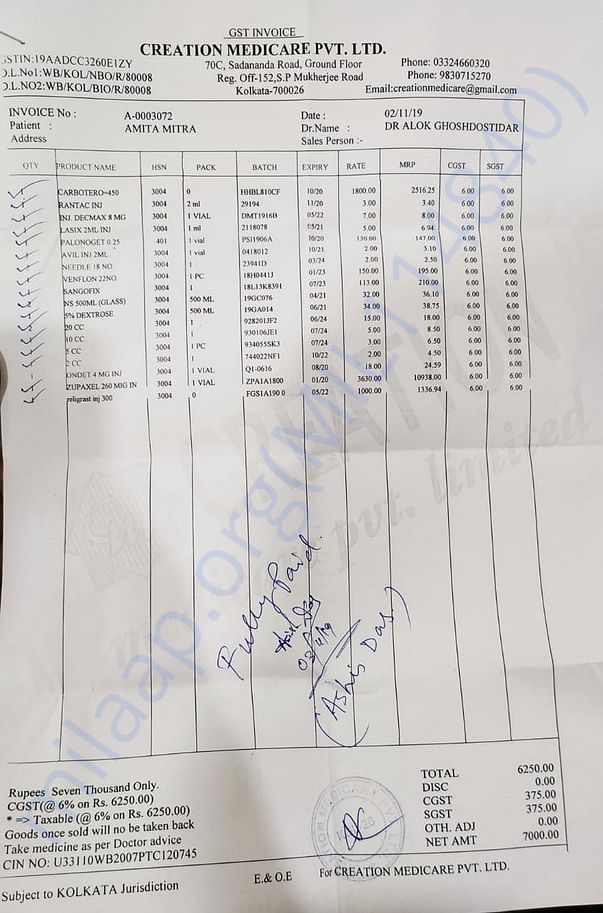 GST INVOICE
CREATION MEDICARE PVT. LTD.
GSTIN:19AADCC3260E1ZY
70C, Sadananda Road, Ground Floor
Phone: 03324660320
D.L.No1:WB/KOL/NBO/R/80008
Reg. Off-152,S.P Mukherjee Road
Phone: 9830715270
D.L.NO2:WB/KOL/BIO/R/80008
Kolkata-700026
Email:creationmedicare@gmail.com
INVOICE No : A-0003072 Date : 02/11/19
Patient : AMITA MITRA Dr.Name : DR ALOK GHOSHDOSTIDAR
Address Sales Person :-
QTY PRODUCT NAME HSN PACK BATCH EXPIRY RATE MRP CGST SGST
CARBOTERO-450 3004 0 HHBL810CF 10/20 1800.00 2516.25 6.00 6.00
RANTAC INJ 3004 2 ml 29194 11/20 3.00 3.40 6.00 6.00
INJ. DECMAX 8 MG 3004 1 VIAL DMT1916B 05/22 7.00 8.00 6.00 6.00
LASIX 2ML INJ 3004 1 ml 2118078 05/21 5.00 6.94 6.00 6.00
PALONOGET 0.25 401 1 vial PSI1906A 10/20 130.00 147.00 6.00 6.00
AVIL INJ 2ML 3004 1 vial 0418012 10/21 2.00 3.10 6.00 6.00
NEEDLE 18 NO 3004 1 23941D 03/24 2.00 2.50 6.00 6.00
VENFLON 22NO. 3004 1 PC 18H0441J 01/23 150.00 195.00 6.00 6.00
SANGOFIX 3004 1 18L13K8391 07/23 113.00 210.00 6.00 6.00
NS 500ML (GLASS) 3004 500 ML 19GC076 04/21 32.00 36.10 6.00 6.00
5% DEXTROSE 3004 500 ML 19GA014 06/21 34.00 38.75 6.00 6.00
20 CC 3004 1 928201JF2 06/24 15.00 18.00 6.00 6.00
10 CC 3004 1 930106JE1 07/24 5.00 8.50 6.00 6.00
5 CC 3004 1 PC 934055SK3 07/24 3.00 6.50 6.00 6.00
2 CC 3004 1 744022NF1 10/22 2.00 4.50 6.00 6.00
ONDET 4 MG INJ 3004 1 VIAL Q1-0616 08/20 18.00 24.59 6.00 6.00
ZUPAXEL 260 MIG IN 3004 1 VIAL ZPA1A1800 01/20 3630.00 10938.00 6.00 6.00
religrast inj 300 3004 0 FGS1A190 0 05/22 1000.00 1336.94 6.00 6.00
Fully Paid.
(Ashis Das)
Rupees Seven Thousand Only.
CGST(@ 6% on Rs. 6250.00)
* => Taxable (@ 6% on Rs. 6250.00)
Goods once sold will no be taken back
Take medicine as per Doctor advice
CIN NO: U33110WB2007PTC120745
TOTAL 6250.00
DISC 0.00
CGST 375.00
SGST 375.00
OTH. ADJ 0.00
NET AMT 7000.00
Subject to KOLKATA Jurisdiction
E.& O.E
For CREATION MEDICARE PVT. LTD.